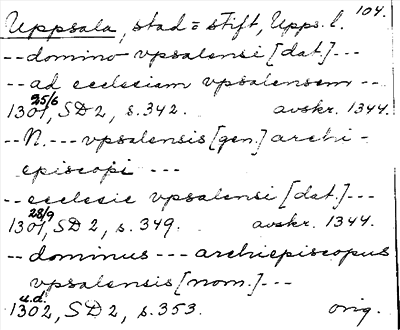 104.
Uppsala, stad o stift, Upps. l.
-- domino vpsalensi [dat.] ---
-- ad ecclesiam vpsalensem --
1301 25/6, SD 2, s. 342. avskr. 1344.
-- N. --- vpsalensis [gen.] archi-
episcopi ---
-- ecclesie vpsalensi [dat.] ---
1301 28/9, SD 2, s. 349. avskr. 1344.
-- dominus --- archiepiscopus
vpsalensis [nom.] ---
1302 u.d., SD 2, s. 353. orig.